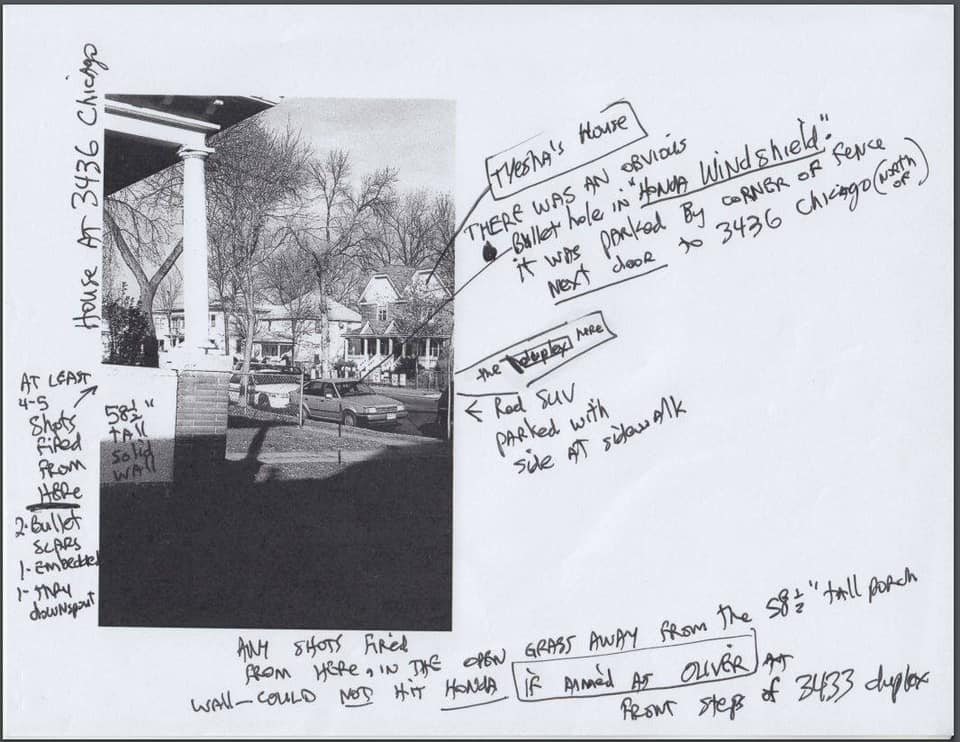 House AT 3436 Chicago
TYESHA'S HOUSE
THERE WAS AN OBVIOUS
Bullet hole in "HONDA WINDSHIELD".
it WAS PARKED By CORNER OF FENCE
NEXT door to 3436 Chicago (NORTH OF)
the duplex here
← Red SUV
parked with
side AT sidewalk
AT LEAST
4-5
Shots
fired
FROM
HERE
2-Bullet
SCARS
1-Embedded
1-thru
downspout
58½"
TALL
Solid
WALL
ANY SHOTS FIRED
FROM HERE, IN THE OPEN GRASS AWAY FROM the 58½" tall porch
WALL—COULD NOT HIT HONDA if AIMED AT OLIVER AT
FRONT steps of 3433 duplex